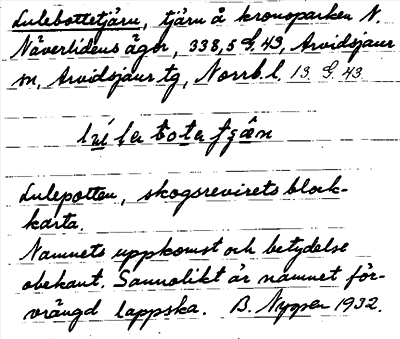 Lulebottetjärn, tjärn å kronoparken N.
Näverlidens ägor, 338,5 G.43, Arvidsjaur
sn, Arvidsjaur tg, Norrb.l. 13 G. 43
Lulepotten, skogsrevirets block-
karta.
Namnets uppkomst och betydelse
obekant. Sannolikt är namnet för-
vrängd lappska. B. Nygren 1932.